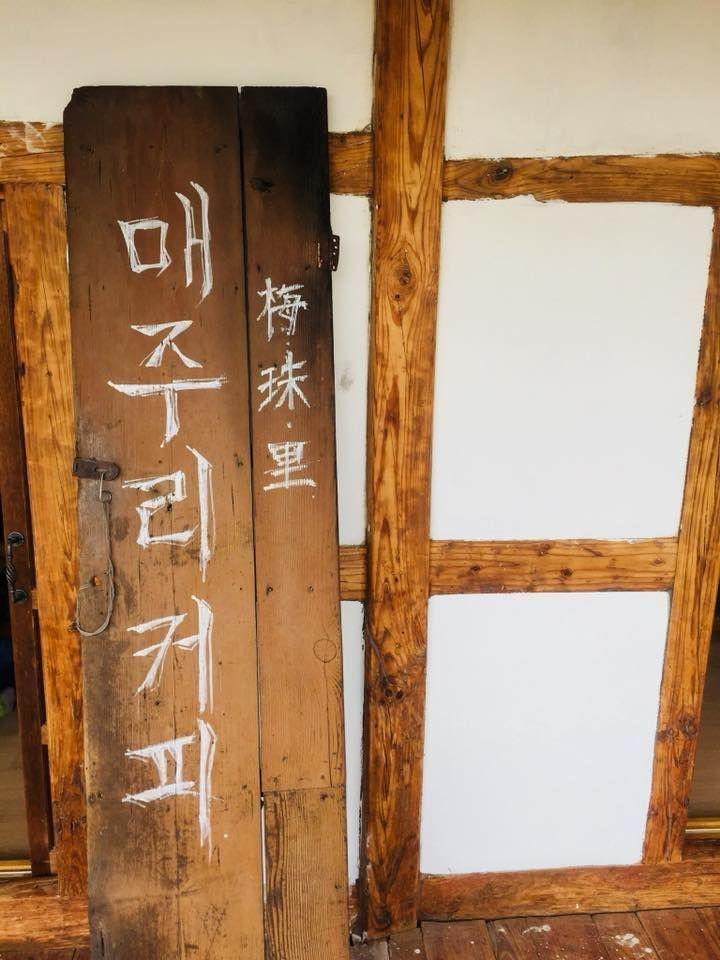 매주리커피
梅·珠·里